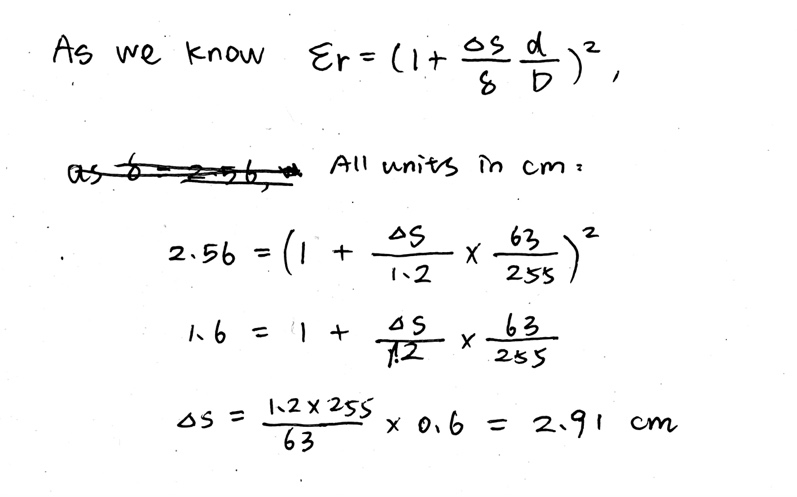 As we know εr = (1 + Δs/δ d/D)²,
as δ = 2.56, All units in cm:
2.56 = (1 + Δs/1.2 × 63/255)²
1.6 = 1 + Δs/1.2 × 63/255
Δs = 1.2×255/63 × 0.6 = 2.91 cm